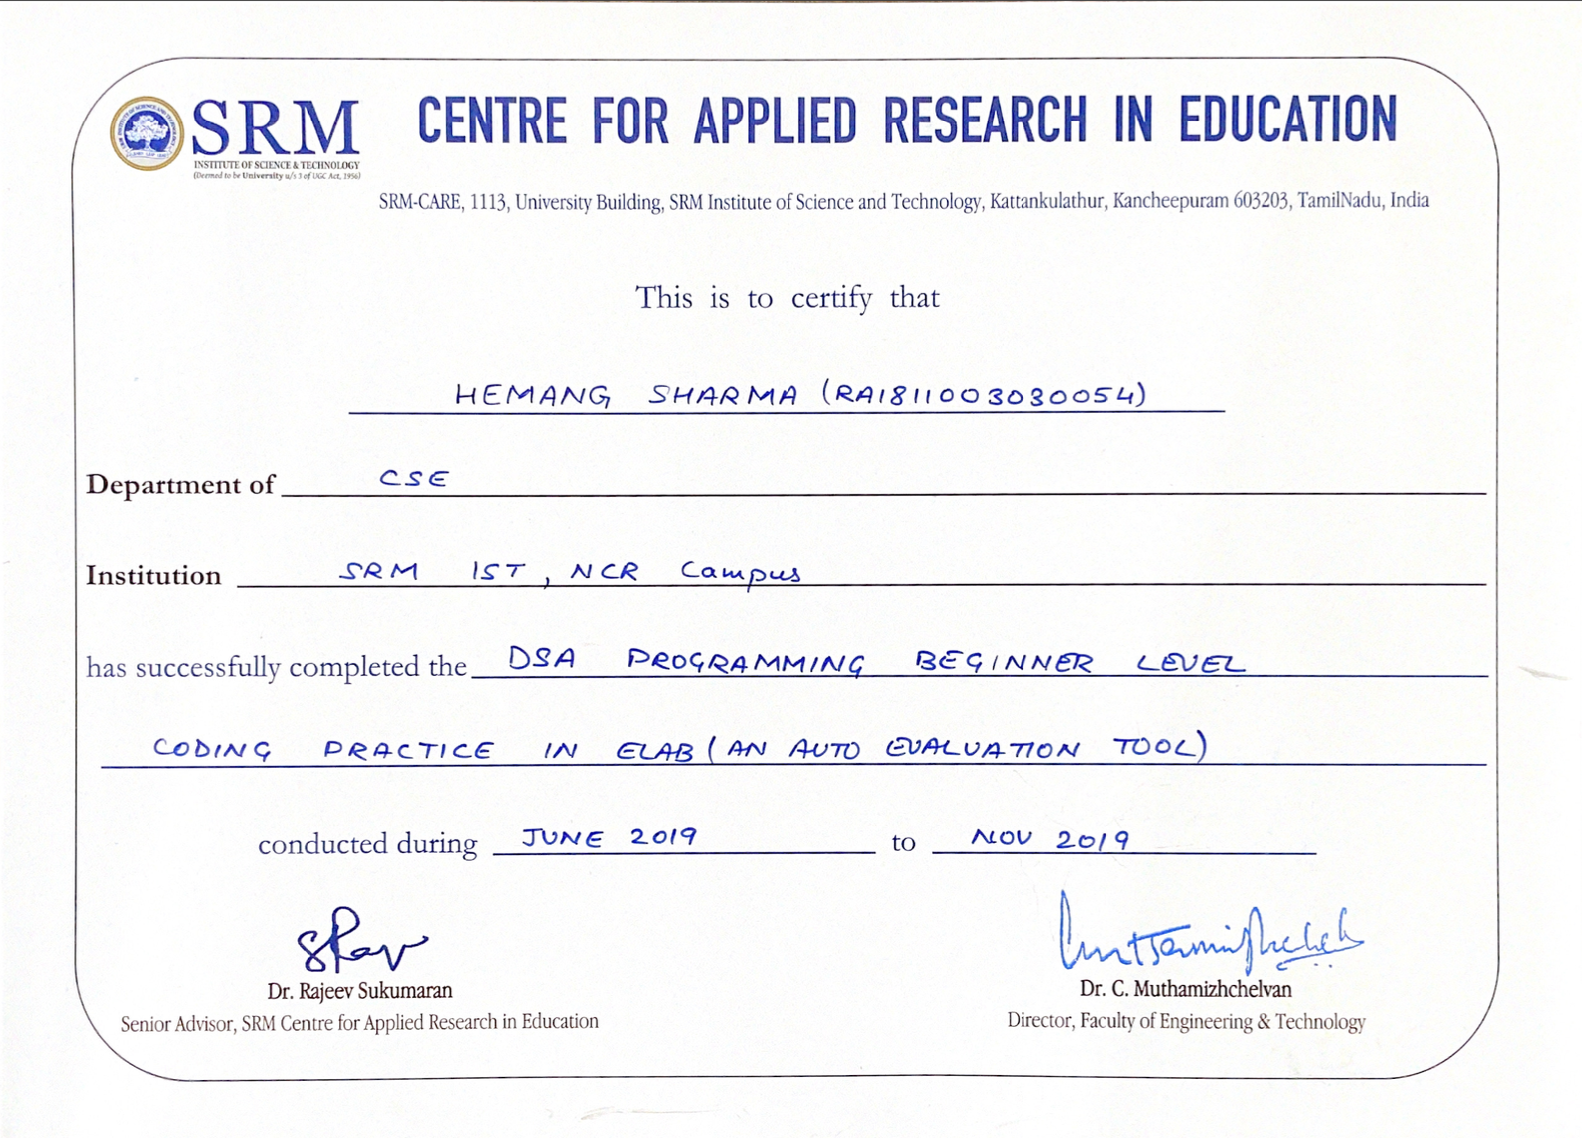 SRM
INSTITUTE OF SCIENCE & TECHNOLOGY
(Deemed to be University u/s 3 of UGC Act, 1956)
CENTRE FOR APPLIED RESEARCH IN EDUCATION
SRM-CARE, 1113, University Building, SRM Institute of Science and Technology, Kattankulathur, Kancheepuram 603203, TamilNadu, India
This is to certify that
HEMANG SHARMA (RA1811003030054)
Department of CSE
Institution SRM IST, NCR Campus
has successfully completed the DSA PROGRAMMING BEGINNER LEVEL
CODING PRACTICE IN ELAB (AN AUTO EVALUATION TOOL)
conducted during JUNE 2019 to NOV 2019
Dr. Rajeev Sukumaran
Senior Advisor, SRM Centre for Applied Research in Education
Dr. C. Muthamizhchelvan
Director, Faculty of Engineering & Technology